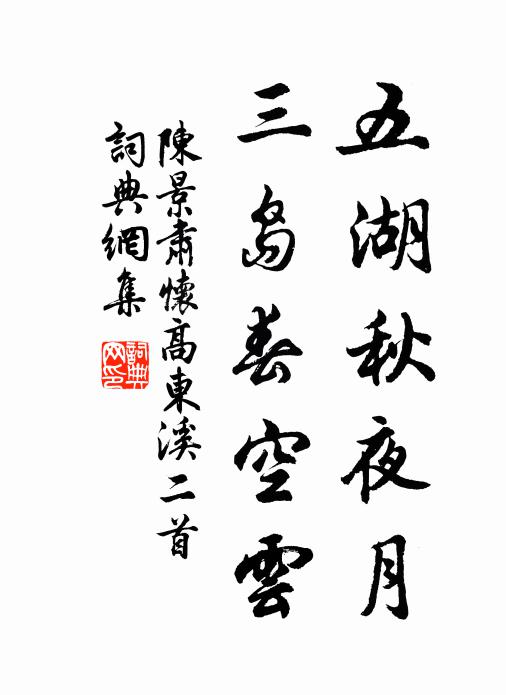 五湖秋夜月
三岛春空雲
陳景肅懷高東溪二首
詞典網集
詞典網印